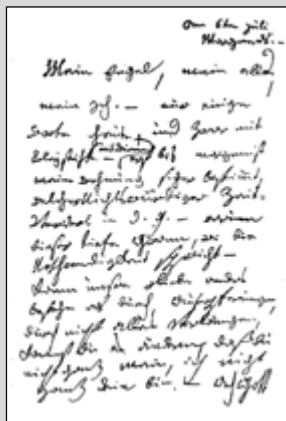 am 6ten Juli
Morgends. –
Mein Engel, mein alles
mein Ich. – nur einige
Worte heute, und zwar mit
Bleystift – mit deinem – erst bis morgen ist
meine Wohnung sicher bestimmt,
welcher Nichtswürdiger Zeit-
verderb in d. g. – warum
dieser tiefe Gram, wo die
Nothwendigkeit spricht –
Kann unsre Liebe anders
bestehn als durch Aufopferungen,
durch nicht alles verlangen,
kannst du es ändern, daß du
nicht ganz mein, ich nicht
ganz dein bin. – Ach Gott